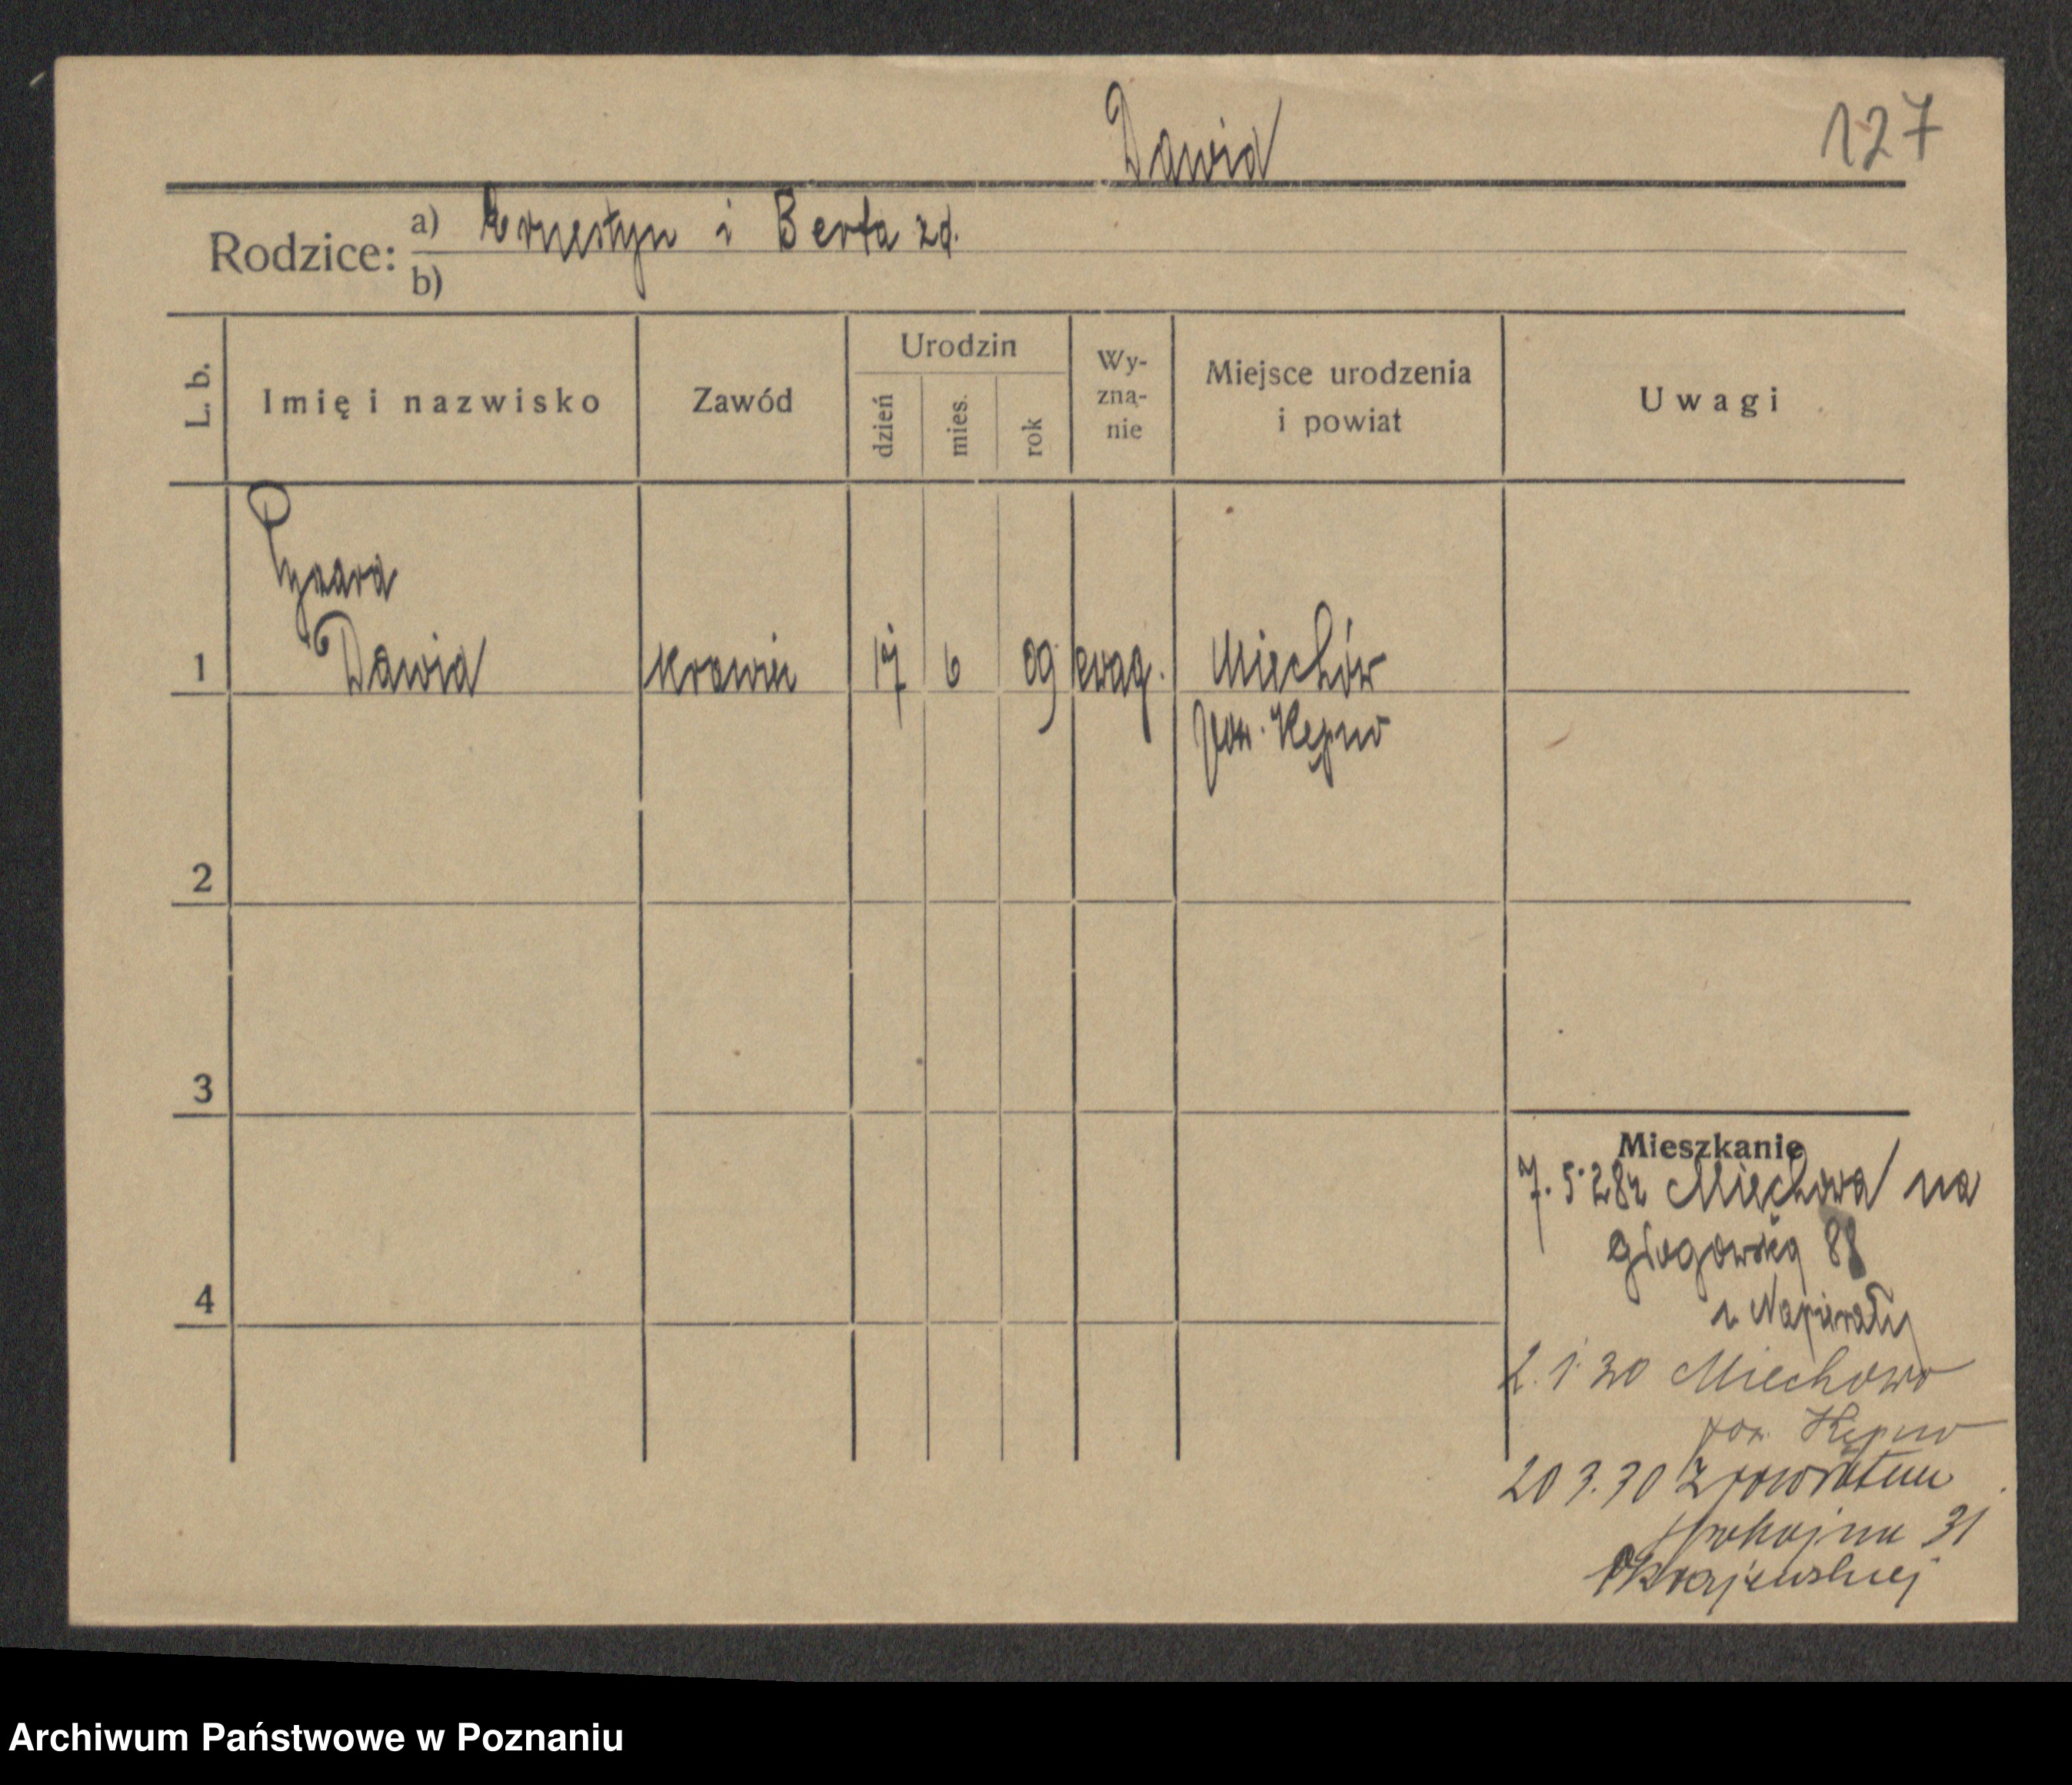 Dawid
127
Rodzice: a) Ernestyn i Berta zd.
b)
L. b. Imię i nazwisko Zawód Urodzin dzień mies. rok Wy-zna-nie Miejsce urodzenia i powiat Uwagi
1 Dawid krawiec 17 6 09 ewag. Miechów
pow. Kępno
2
3
4
Mieszkanie
7.5.28 z Miechowa na
Głogowską 88
u Napierały
2.1.30 Miechowo
pow. Kępno
20 3.30 z powrotem
Spokojna 31
Krajewskiej
Archiwum Państwowe w Poznaniu